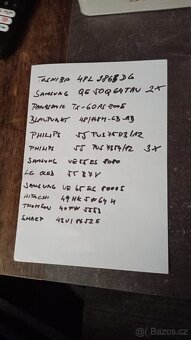 TOSHIBA 49L3863DG
SAMSUNG QE50Q64TAU 2X
PANASONIC TX-60AS800E
BLAUPUNKT
PHILIPS 55 PUS7503/12
PHILIPS 55 PUS7354/12 3X
SAMSUNG UE55ES8000
LG OLED 55B7V
SAMSUNG UE65ES8000S
HITACHI 49HK5W64H
THOMSON 40FW5553
SHARP
Bazoš.cz